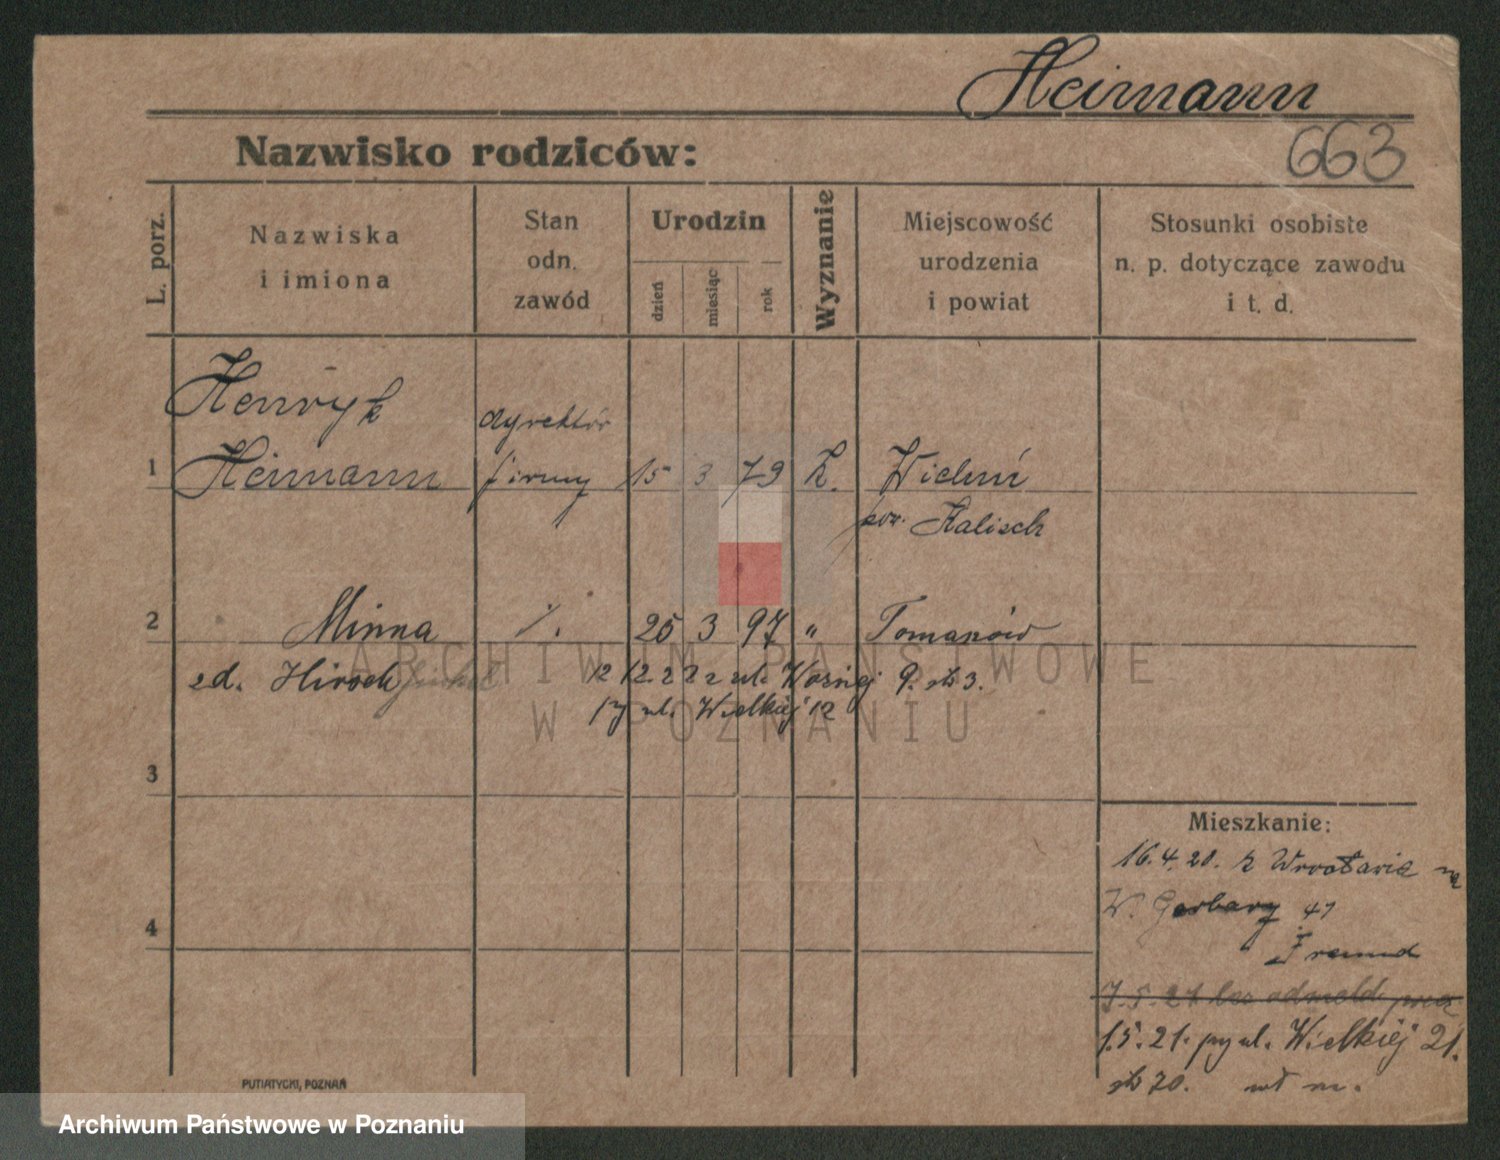 Heimann
663
Nazwisko rodziców:
L. porz.
Nazwiska
i imiona
Stan
odn.
zawód
Urodzin
dzień
miesiąc
rok
Wyznanie
Miejscowość
urodzenia
i powiat
Stosunki osobiste
n. p. dotyczące zawodu
i t. d.
Henryk
dyrektór
1 Heimann firmy 15 3 79 Ż. Wieluń
pow. Kalisch
2 Minna ./. 25 3 97 " Tomaszów
ARCHIWUM PAŃSTWOWE
zd. Hirsch 12 12. 22 ul. Woźnej 9.
W POZNANIU
ul. Wielkiej 12
3
Mieszkanie:
16.4.20. z Wrocławia na
W. Garbary 41
4
Freund
7.5.21
1.5.21. ul. Wielkiej 21.
20.
PUTIATYCKI, POZNAŃ
Archiwum Państwowe w Poznaniu